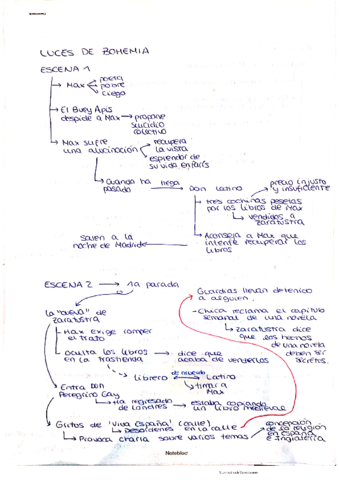 LUCES DE BOHEMIA
ESCENA 1
Max
poeta
pobre
ciego
El Buey Apis
despide a Max
propone
suicidio
colectivo
Max sufre
una alucinación
recupera
la vista
esplendor de
su vida en París
Cuando ha
pasado
llega
Don Latino
precio injusto
y insuficiente
tres cochinas pesetas
por los libros de Max
vendidos a
Zaratustra
Aconseja a Max que
intente recuperar los
libros
salen a la
noche de Madrid
ESCENA 2
1a parada
la "cueva" de
Zaratustra
Max exige romper
el trato
oculta los libros
en la trastienda
dice que
acaba de venderlos
Librero
de acuerdo
Latino
timar a
Max
Entra Don
Peregrino Gay
Ha regresado
de Londres
estaba copiando
un libro medieval
Gritos de 'Viva España' (calle)
Desórdenes en la calle
Provoca charla sobre varios temas
concepción
de la religión
en España
e Inglaterra
Guardias llevan detenido
a alguien.
- Chica reclama el capítulo
semanal de una novela
Zaratustra dice
que los héroes
de una novela
deben ser
Notebloc